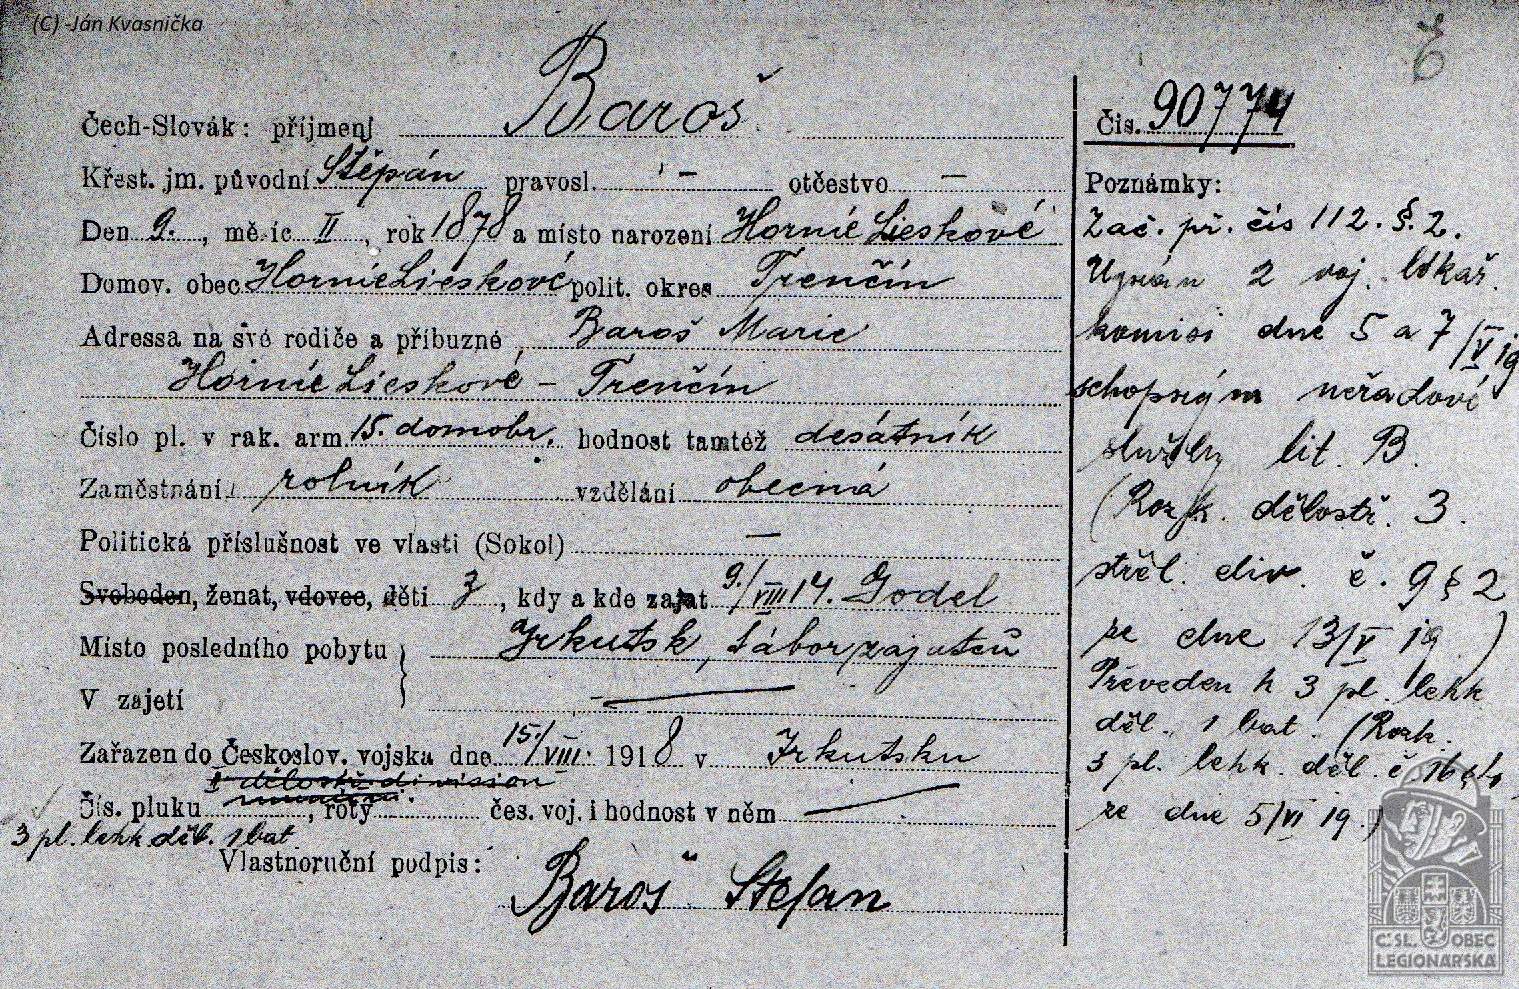 (C) -Ján Kvasnička
Čech-Slovák: příjmení Baroš
Čis. 90774
Křest. jm. původní Štěpán pravosl. - otčestvo -
Den 9., měsíc II, rok 1878 a místo narození Hornié Lieskové
Domov. obec Hornie Lieskové polit. okres Trenčín
Adressa na své rodiče a příbuzné, Baroš Marie
Hornié Lieskové - Trenčín
Číslo pl. v rak. arm. 15. domobr. hodnost tamtéž desátník
Zaměstnání rolník vzdělání obecná
Politická příslušnost ve vlasti (Sokol) -
Svoboden, ženat, vdovec, děti 3, kdy a kde zajat 9./VIII 14. Godel
Místo posledního pobytu Irkutsk, tábor zajatců
V zajetí
Zařazen do Českoslov. vojska dne 15./VIII. 1918 v Irkutsku
1 dělostř. division
Čís. pluku , roty čes. voj. i hodnost v něm
3 pl. lehk. děl. 1 bat.
Vlastnoruční podpis:
Baroš Stefan
Poznámky:
Zač. př. čís 112. §. 2.
Uznán 2 voj. lékař.
komisi dne 5 a 7/V 19
schopným neřadové
služby lit. B.
(Rozk. dělostř. 3.
střel. div. č. 9 § 2
ze dne 13/V 19)
Převeden k 3 pl. lehk
děl. 1 bat. (Rozk.
3 pl. lehk. děl. č. 16 § 4
ze dne 5/VI 19.)
Č.SL. OBEC
LEGIONÁŘSKÁ